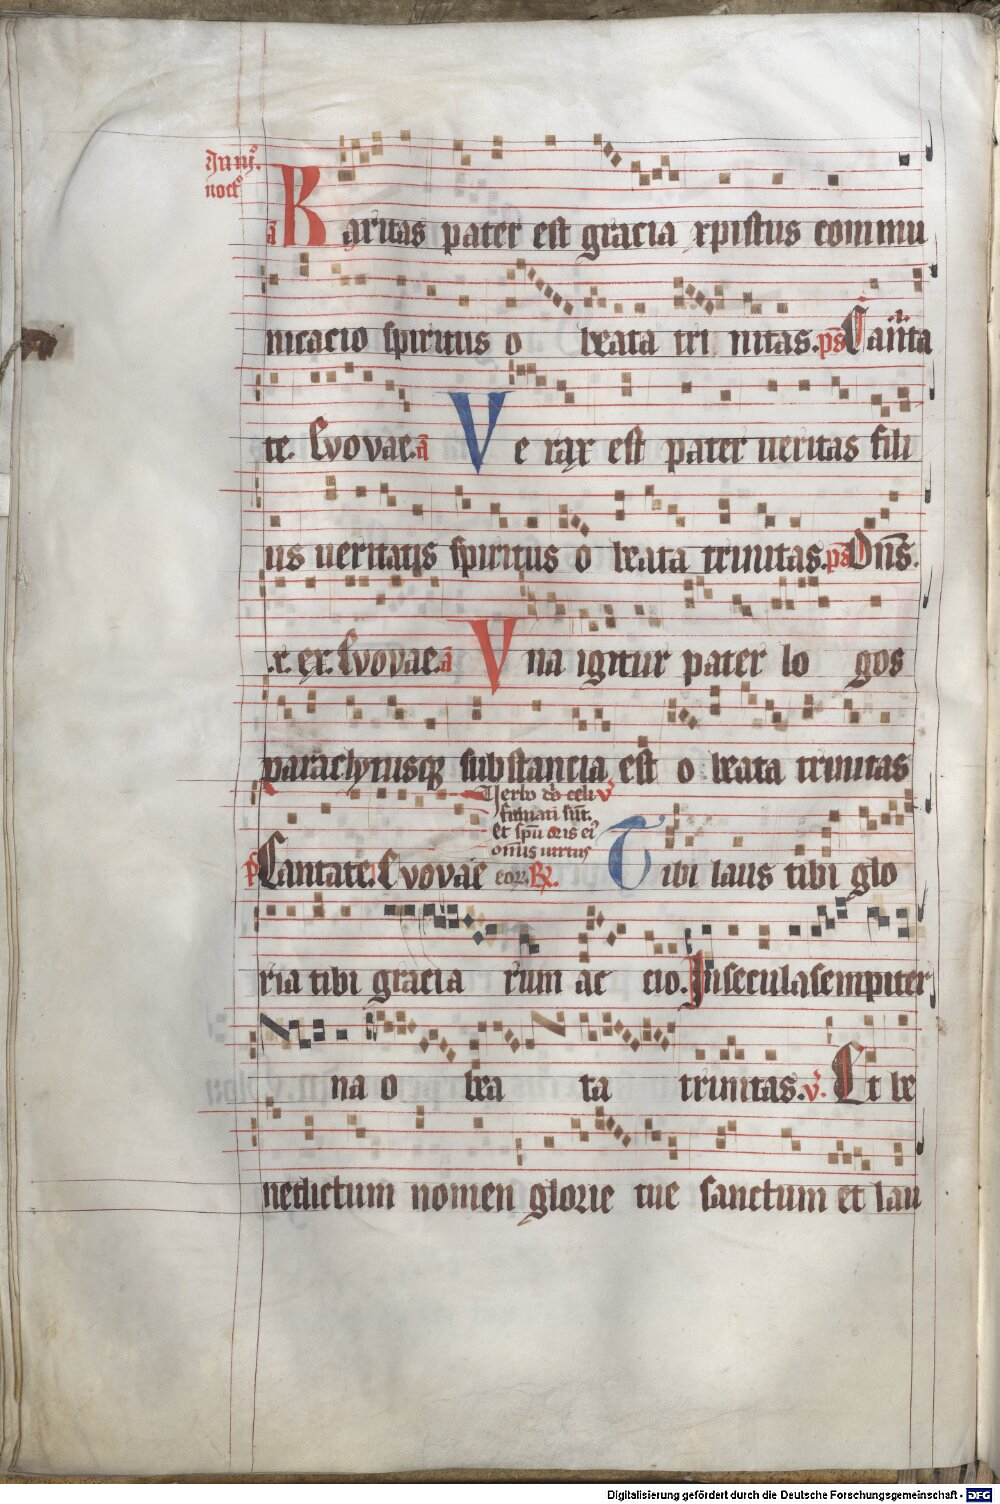 In iijº.
noctº
ā Karitas pater est gracia xpistus commu
nicacio spiritus o beata tri nitas. ps̄ Can̄ta
te. Evovae. ā Ve rax est pater ueritas fili
us ueritatis spiritus o beata trinitas. ps̄ Dn̄s.
.r. ex. Evovae. ā Vna igitur pater lo gos
paraclytusq substancia est o beata trinitas
Uerbo dō celi v̄
firmati sūt.
Et spū oris eiº
omīs uirtus
ps̄ Cantate. Evovae eoꝝ. R. Tibi laus tibi glo
ria tibi gracia rum ac cio. In secula sempiter
na o bea ta trinitas. v. Et be
nedictum nomen glorie tue sanctum et lau
Digitalisierung gefördert durch die Deutsche Forschungsgemeinschaft - DFG